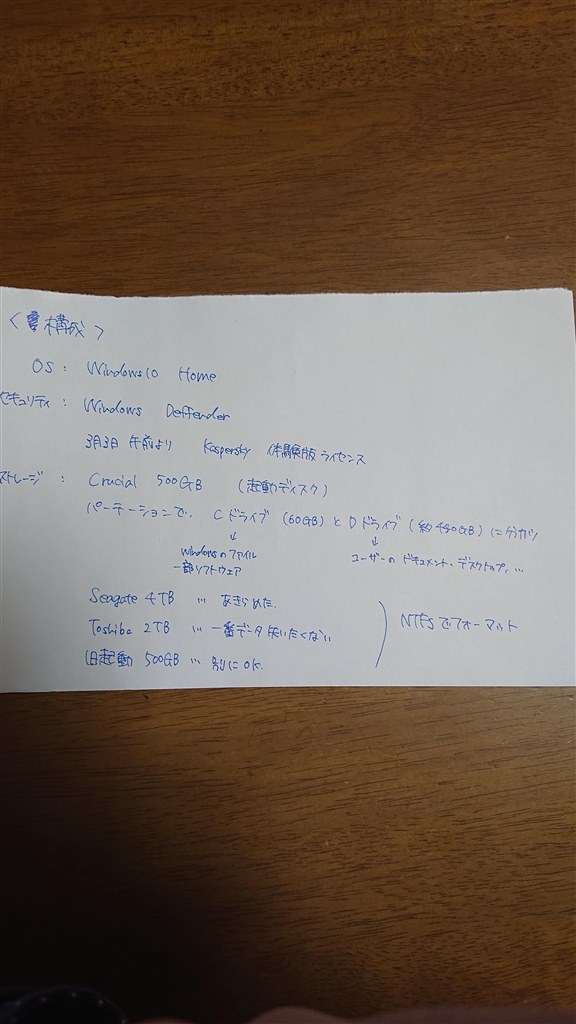 〈構成〉
OS: Windows10 Home
セキュリティ: Windows Deffender
3月3日 午前より Kaspersky 体験版ライセンス
ストレージ: Crucial 500GB (起動ディスク)
パーテーションで、Cドライブ (60GB) と Dドライブ (約440GB) に分かつ
↓ ↓
Windowsのファイル ユーザーのドキュメント・デスクトップ, …
一部ソフトウェア
Seagate 4TB … あきらめた.
Toshiba 2TB … 一番データ失いたくない
旧起動 500GB … 別にOK.
NTFSでフォーマット